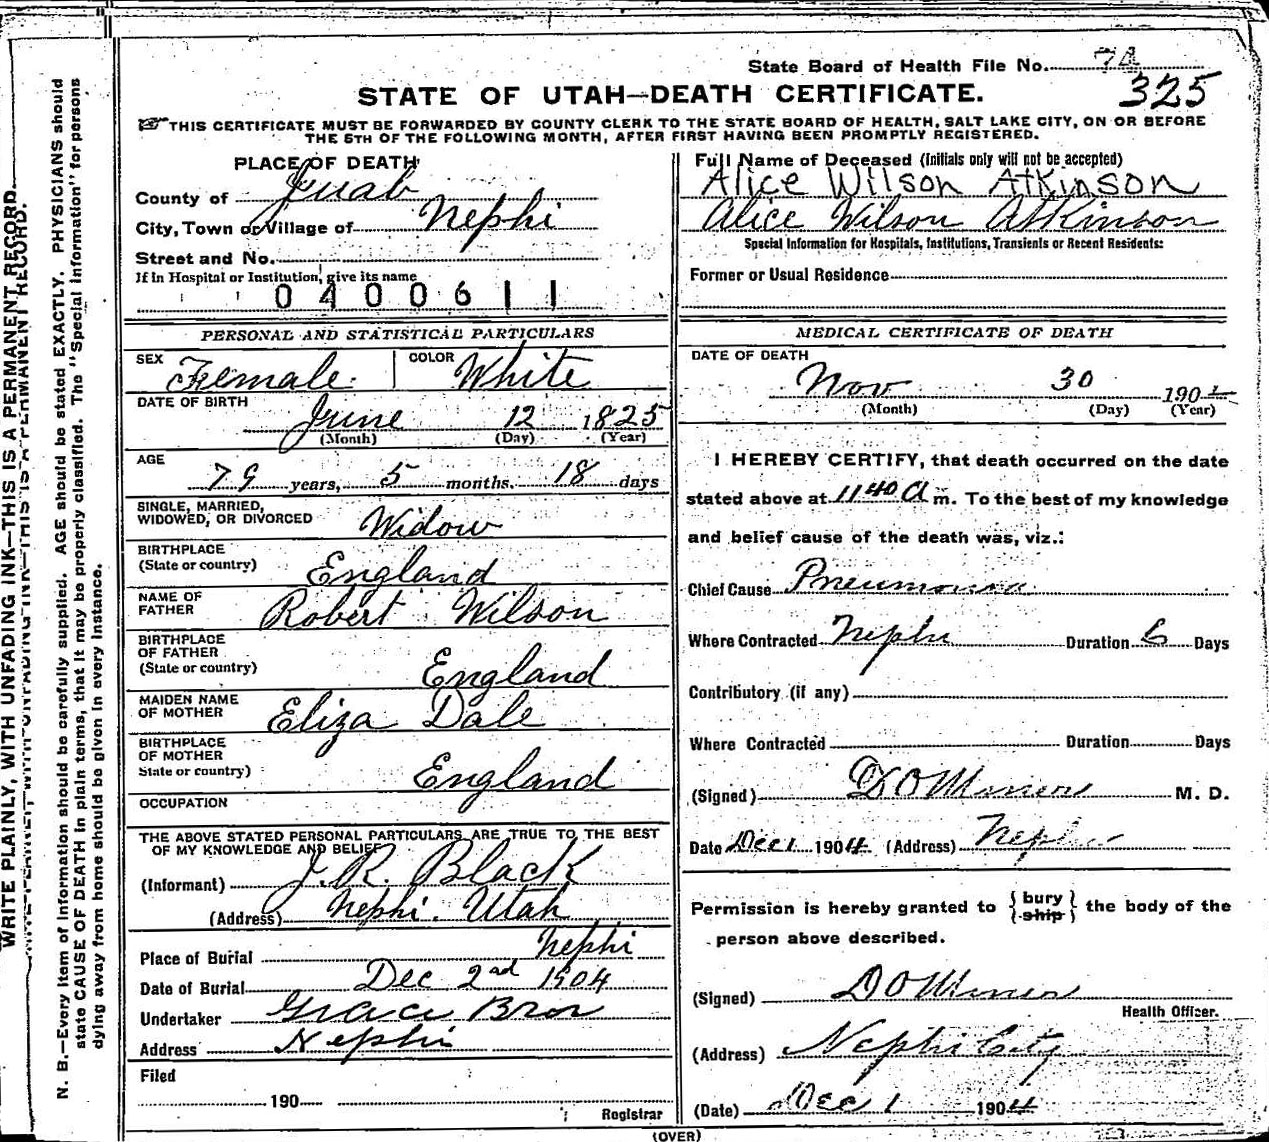 State Board of Health File No.
325
STATE OF UTAH—DEATH CERTIFICATE.
THIS CERTIFICATE MUST BE FORWARDED BY COUNTY CLERK TO THE STATE BOARD OF HEALTH, SALT LAKE CITY, ON OR BEFORE
THE 5TH OF THE FOLLOWING MONTH, AFTER FIRST HAVING BEEN PROMPTLY REGISTERED.
PLACE OF DEATH
County of Juab
City, Town or Village of Nephi
Street and No.
If in Hospital or Institution, give its name
0400611
Full Name of Deceased (Initials only will not be accepted)
Alice Wilson Atkinson
Alice Wilson Atkinson
Special Information for Hospitals, Institutions, Transients or Recent Residents:
Former or Usual Residence
PERSONAL AND STATISTICAL PARTICULARS
SEX Female COLOR White
DATE OF BIRTH
June 12 1825
(Month) (Day) (Year)
AGE
79 years, 5 months, 18 days
SINGLE, MARRIED,
WIDOWED, OR DIVORCED Widow
BIRTHPLACE
(State or country) England
NAME OF
FATHER Robert Wilson
BIRTHPLACE
OF FATHER
(State or country) England
MAIDEN NAME
OF MOTHER Eliza Dale
BIRTHPLACE
OF MOTHER
State or country) England
OCCUPATION
THE ABOVE STATED PERSONAL PARTICULARS ARE TRUE TO THE BEST
OF MY KNOWLEDGE AND BELIEF
(Informant) J. R. Black
(Address) Nephi. Utah
Place of Burial Nephi
Date of Burial Dec 2nd 1904
Undertaker Grace Bros
Address Nephi
Filed
190
Registrar
MEDICAL CERTIFICATE OF DEATH
DATE OF DEATH
Nov 30 1904
(Month) (Day) (Year)
I HEREBY CERTIFY, that death occurred on the date
stated above at 1140 A m. To the best of my knowledge
and belief cause of the death was, viz.:
Chief Cause Pneumonia
Where Contracted Nephi Duration 6 Days
Contributory (if any)
Where Contracted Duration Days
(Signed) D O Miner M. D.
Date Dec 1 1904 (Address) Nephi
Permission is hereby granted to { bury ship } the body of the
person above described.
(Signed) D O Miner
Health Officer.
(Address) Nephi City
(Date) Dec 1 1904
(OVER)
WRITE PLAINLY, WITH UNFADING INK—THIS IS A PERMANENT RECORD.
N. B.—Every item of information should be carefully supplied. AGE should be stated EXACTLY. PHYSICIANS should
state CAUSE OF DEATH in plain terms, that it may be properly classified. The "Special Information" for persons
dying away from home should be given in every instance.